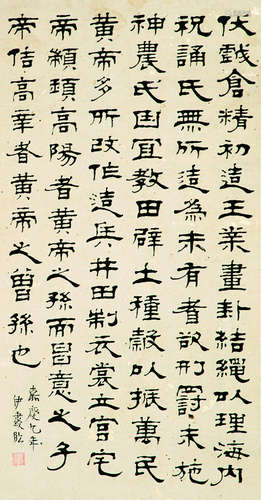 伏戲倉精初造王業畫卦結繩以理海内
祝誦氏無所造為未有耆欲刑罰未施
神農氏因宜教田辟土種穀以振萬民
黃帝多所改作造兵井田制衣裳立宮宅
帝顓頊高陽者黃帝之孫而昌意之子
帝佶高辛者黃帝之曾孫也
嘉慶九年
伊秉綬